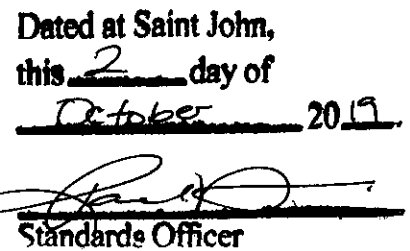 Dated at Saint John,
this 2 day of
October 2019.
Standards Officer